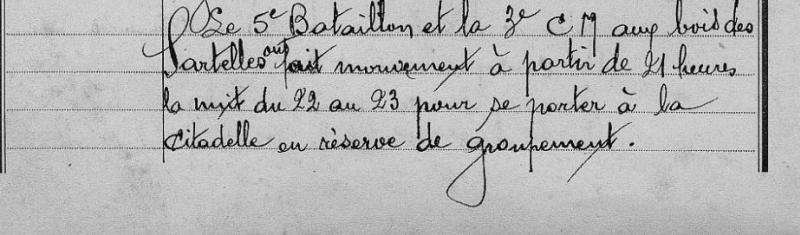 Le 5e Bataillon et la 3e C M aux bois des
Sartelles ont fait mouvement à partir de 21 heures
la nuit du 22 au 23 pour se porter à la
Citadelle en réserve de groupement.